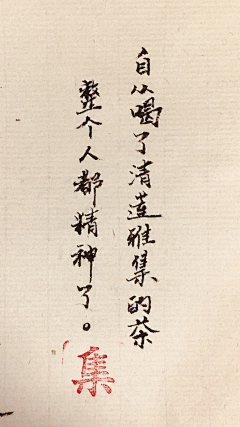 自从喝了清莲雅集的茶
整个人都精神了。
集